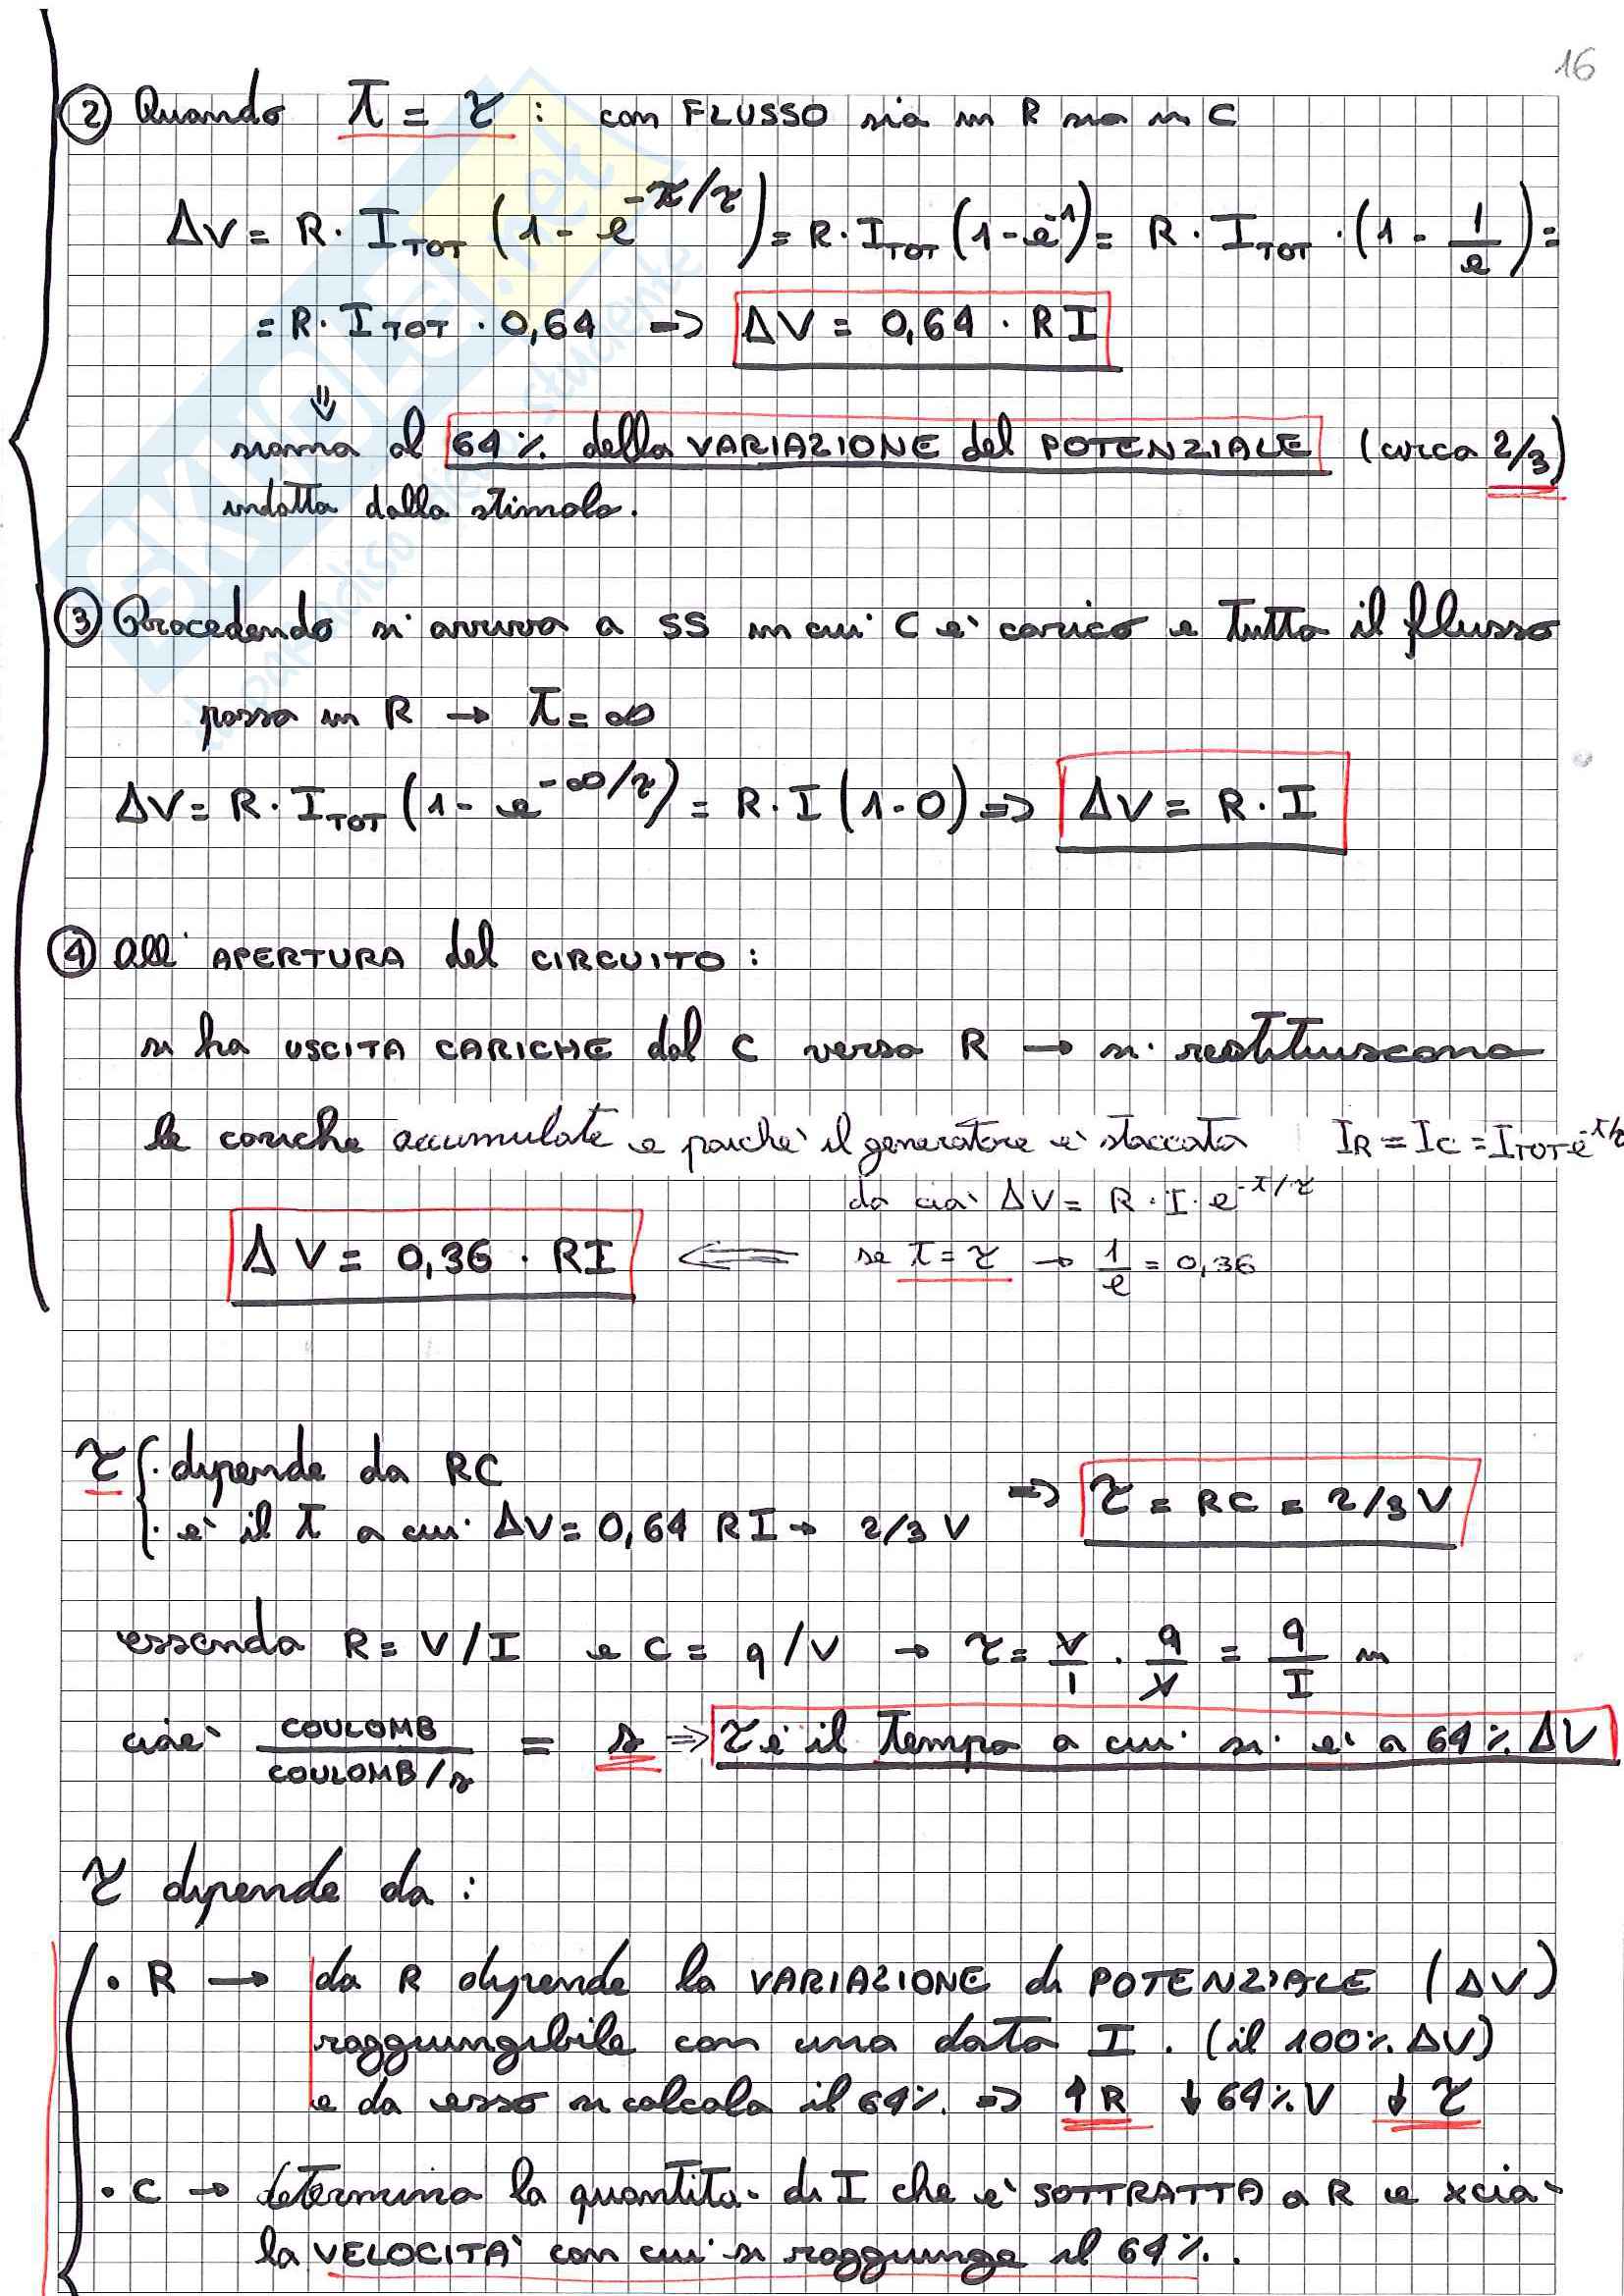 16
② Quando t = τ : con FLUSSO sia in R sia in C
ΔV = R · I_TOT (1 - e^-t/τ) = R · I_TOT (1 - e^-1) = R · I_TOT · (1 - 1/e) =
= R · I_TOT · 0,64 => ΔV = 0,64 · RI
⇓
siamo al 64% della VARIAZIONE del POTENZIALE (circa 2/3)
indotta dallo stimolo.
③ Procedendo si arriva a SS in cui C è carico e tutto il flusso
passa in R → t = ∞
ΔV = R · I_TOT (1 - e^-∞/τ) = R · I (1 - 0) => ΔV = R · I
④ all' APERTURA del CIRCUITO :
si ha USCITA CARICHE dal C verso R → si restituiscono
le cariche accumulate e poichè il generatore è staccato I_R = I_C = I_TOT e^-t/τ
da ciò ΔV = R · I · e^-t/τ
ΔV = 0,36 · RI <= se t = τ → 1/e = 0,36
τ { · dipende da RC
· è il t a cui ΔV = 0,64 RI → 2/3 V => τ = RC = 2/3 V
essendo R = V/I e C = q/V → τ = V/I · q/V = q/I in
cioè COULOMB / COULOMB/s = s => τ è il tempo a cui si è a 64% ΔV
τ dipende da :
· R → da R dipende la VARIAZIONE di POTENZIALE (ΔV)
raggiungibile con una data I . (il 100% ΔV)
e da esso si calcola il 64% => ↑R ↓64%V ↓τ
· C → determina la quantità di I che è SOTTRATTA a R e xciò
la VELOCITÀ con cui si raggiunge il 64% .
SKUOLA.net
il paradiso dello studente